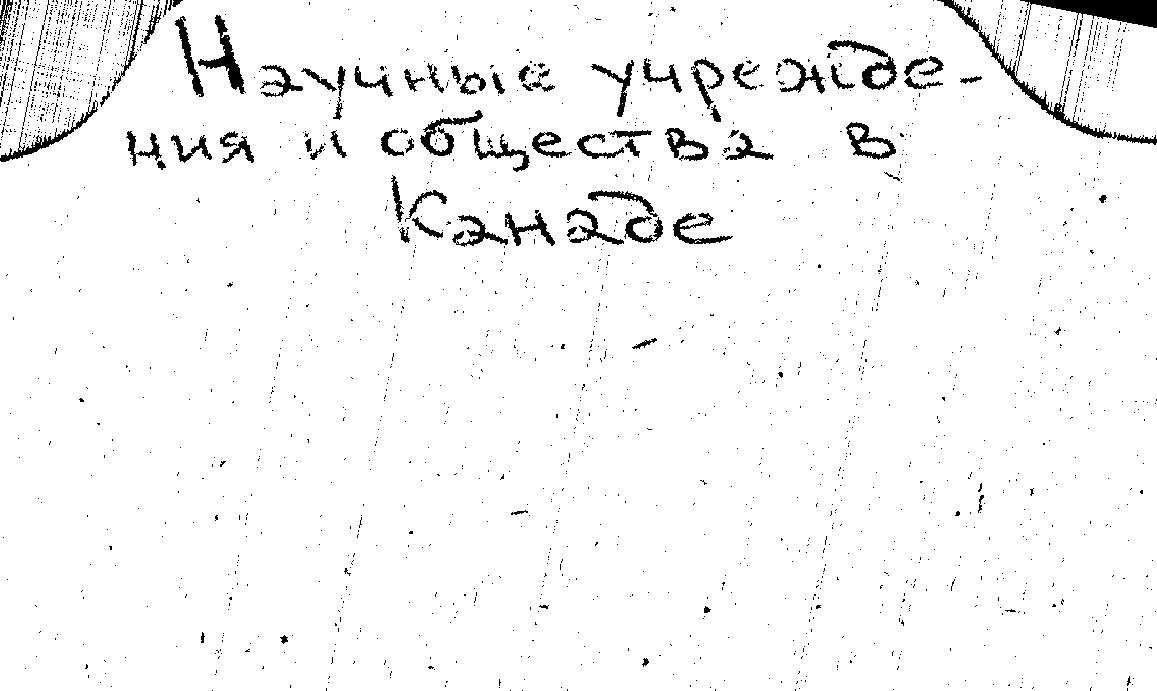 Научные учрежде-
ния и общества в
Канаде